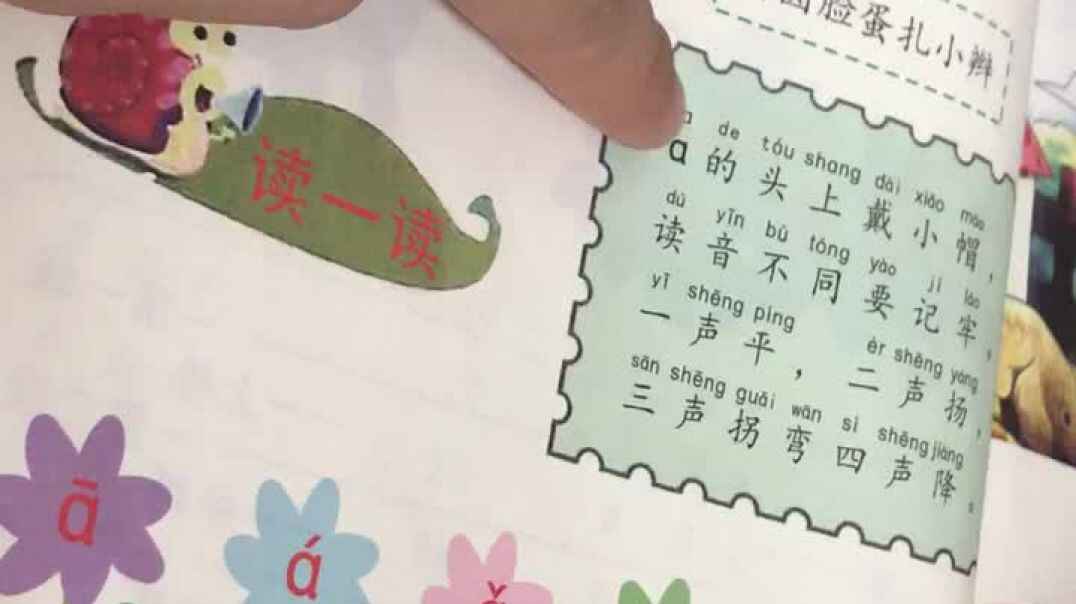 脸蛋扎小辫
读一读
de tóu shang dài xiǎo mào
ɑ的头上戴小帽，
dú yīn bù tóng yào jì láo
读音不同要记牢，
yī shēng píng èr shēng yáng
一声平，二声扬，
sān shēng guǎi wān sì shēng jiàng
三声拐弯四声降。
ā
á